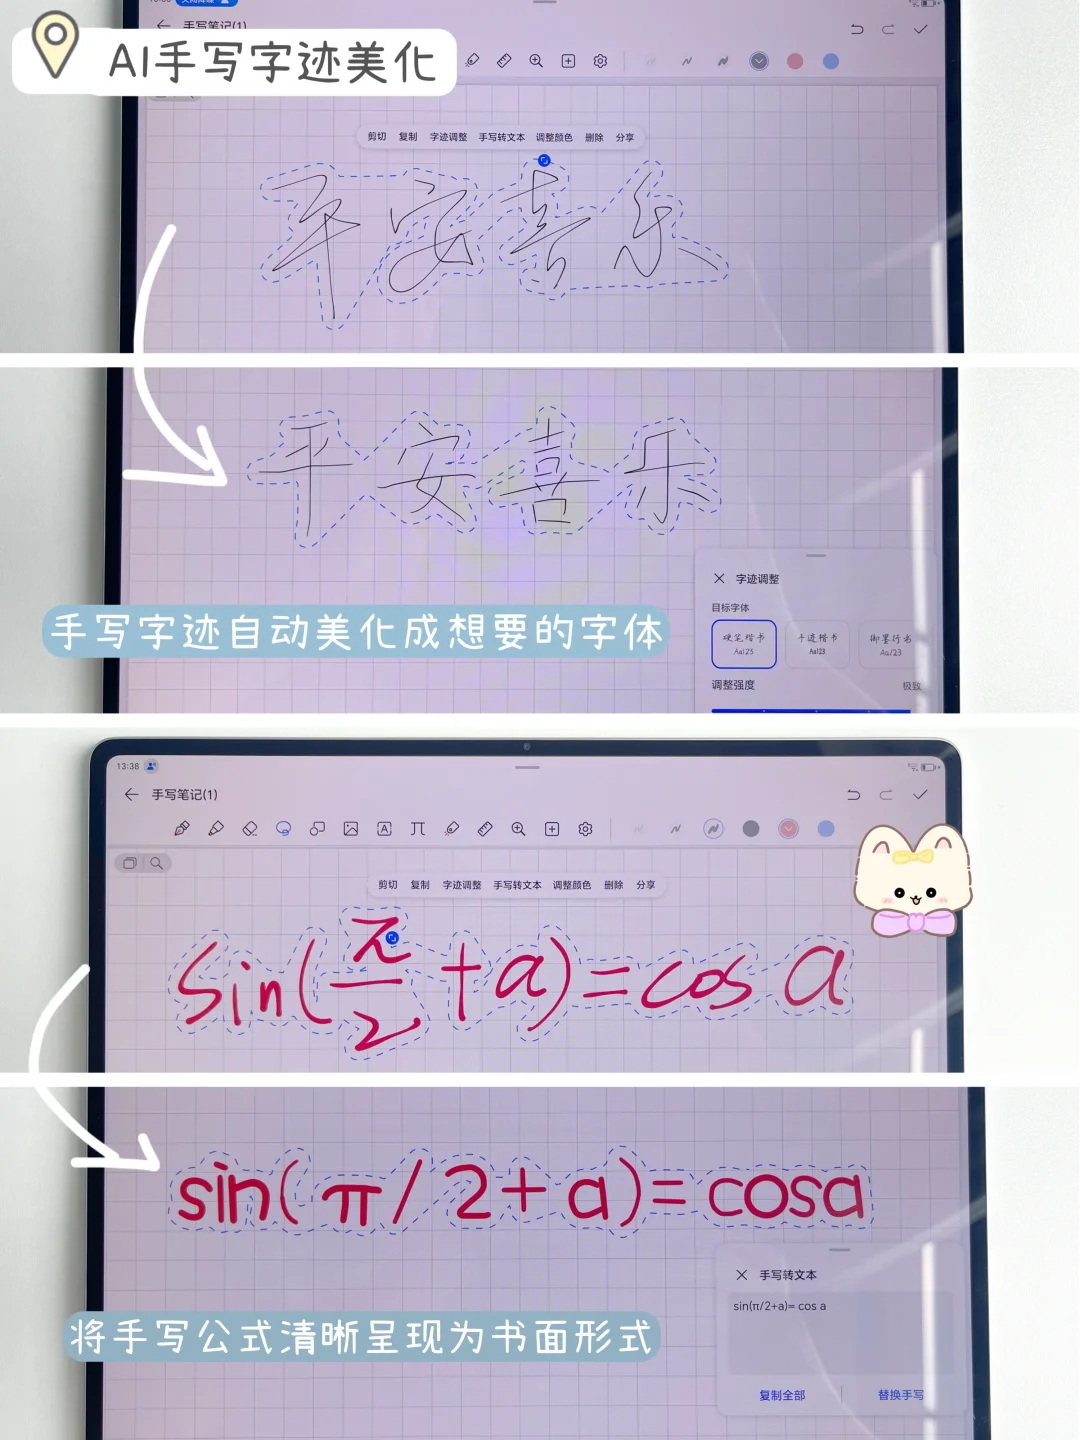 手写笔记(1)
AI手写字迹美化
剪切 复制 字迹调整 手写转文本 调整颜色 删除 分享
平安喜乐
平安喜乐
字迹调整
目标字体
手写字迹自动美化成想要的字体
硬笔楷书 千迹楷书 御墨行书
Aa123 Aa123 Aa/23
调整强度 极致
13:38
手写笔记(1)
剪切 复制 字迹调整 手写转文本 调整颜色 删除 分享
sin(π/2+a)=cos a
sin(π/2+a)=cosa
手写转文本
sin(π/2+a)= cos a
将手写公式清晰呈现为书面形式
复制全部 替换手写